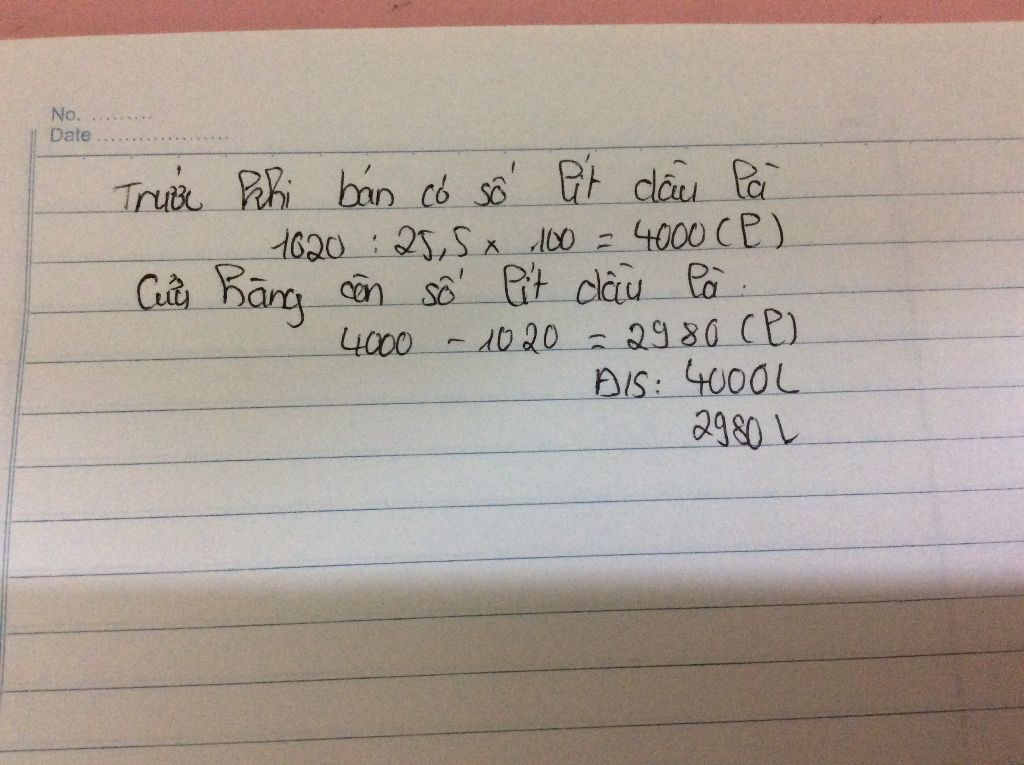 No. .........
Date ...................
Trước khi bán có số lít dầu là
1020 : 25,5 x 100 = 4000 (l)
Cửa hàng còn số lít dầu là.
4000 - 1020 = 2980 (l)
Đ/S: 4000L
2980 L